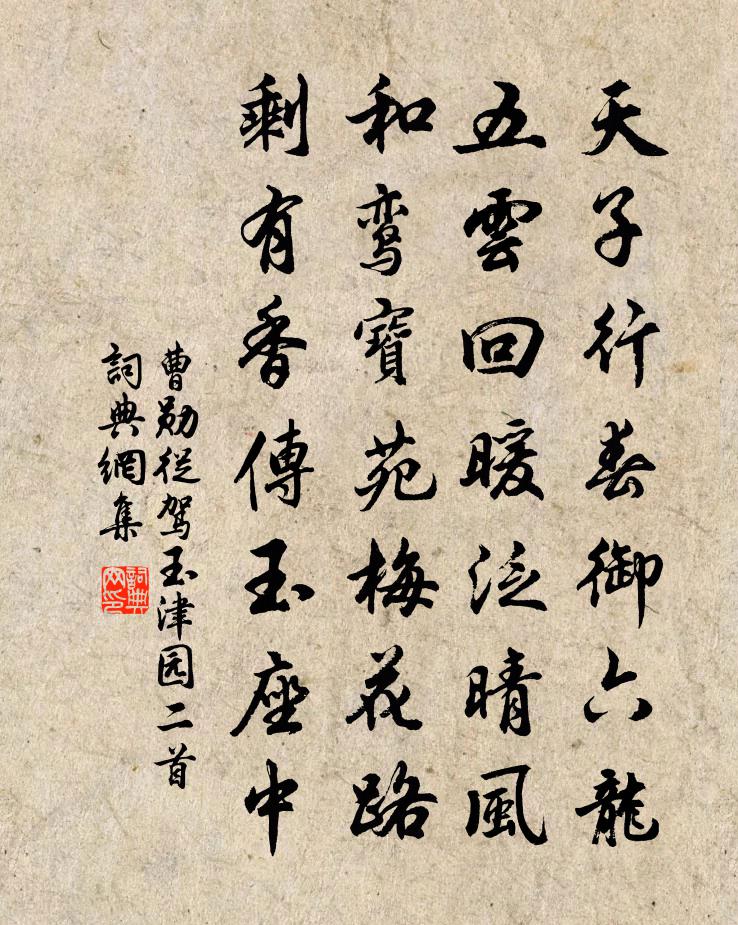 天子行春御六龍
五雲回暖泛晴風
和鸾寶苑梅花路
剩有香傳玉座中
曹勋從駕玉津园二首
詞典網集
詞典网印